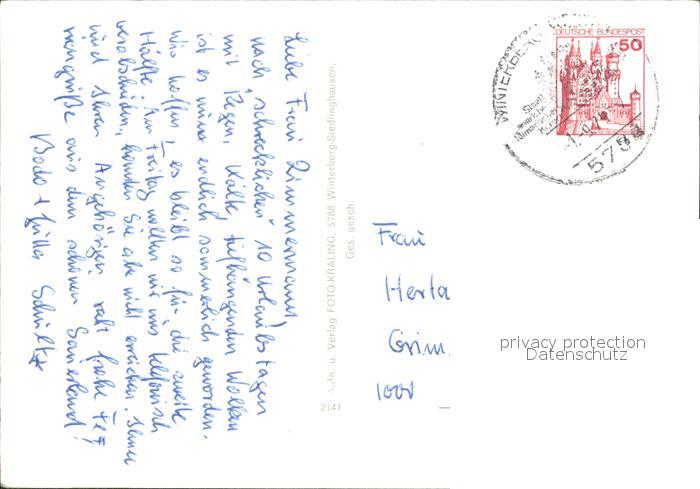 Liebe Frau Zimmermann!
nach schrecklichen 10 Urlaubstagen
mit Regen, Kälte, tiefhängenden Wolken
ist es nun endlich sommerlich geworden.
Wir hoffen, es bleibt so für die zweite
Hälfte. Am Freitag wollten wir uns telefonisch
verabschieden, konnten Sie aber nicht erreichen. Ihnen
und Ihren Angehörigen recht frohe
aus dem schönen Sauerland!
Bodo + Jutta
Aufn. u. Verlag FOTO-KRALING, 5788 Winterberg-Siedlinghausen.
Ges. gesch.
2141
DEUTSCHE BUNDESPOST
50
WINTERBERG
5788
Frau
Herta
Grim
1000
privacy protection
Datenschutz